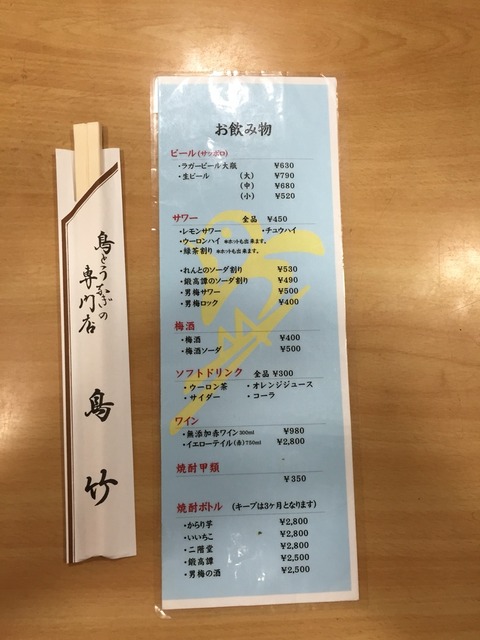 鳥とうなぎの
専門店
鳥竹
お飲み物
ビール(サッポロ)
・ラガービール大瓶 ¥630
・生ビール (大) ¥790
(中) ¥680
(小) ¥520
サワー 全品 ¥450
・レモンサワー ・チュウハイ
・ウーロンハイ ※ホットも出来ます。
・緑茶割り ※ホットも出来ます。
・れんとのソーダ割り ¥530
・鍛高譚のソーダ割り ¥490
・男梅サワー ¥500
・男梅ロック ¥400
梅酒
・梅酒 ¥400
・梅酒ソーダ ¥500
ソフトドリンク 全品 ¥300
・ウーロン茶 ・オレンジジュース
・サイダー ・コーラ
ワイン
・無添加赤ワイン300ml ¥980
・イエローテイル(赤)750ml ¥2,800
焼酎甲類
¥350
焼酎ボトル (キープは3ヶ月となります)
・からり芋 ¥2,800
・いいちこ ¥2,800
・二階堂 ¥2,800
・鍛高譚 ¥2,500
・男梅の酒 ¥2,500